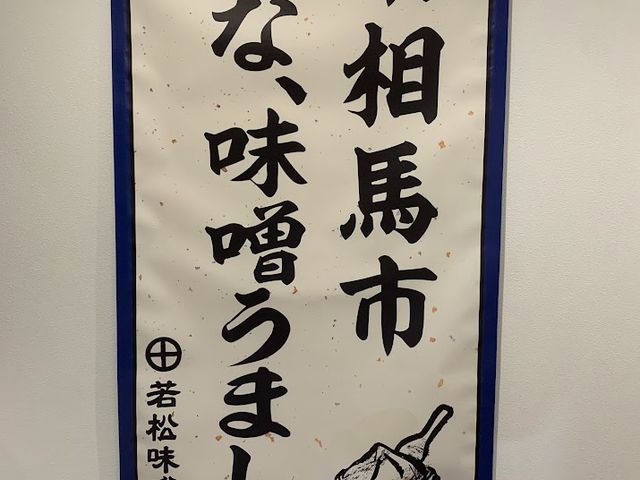 相馬市
な、味噌うまし
若松味